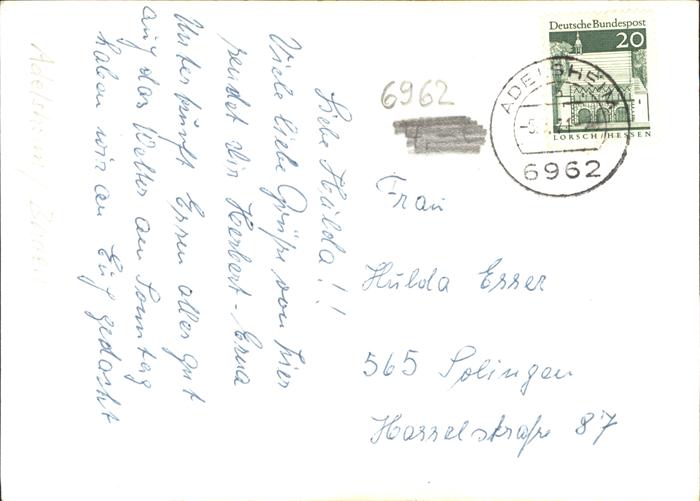 Liebe Hulda!!
Viele liebe Grüße von hier
sendet dir Herbert - Erna
Unterkunft Essen alles gut
auf das Wetter am Sonntag
haben wir an Euch gedacht
Adelsheim / Baden
6962
Deutsche Bundespost
20
LORSCH / HESSEN
ADELSHEIM
6962
Frau
Hulda Esser
565 Solingen
Hasselstraße 87